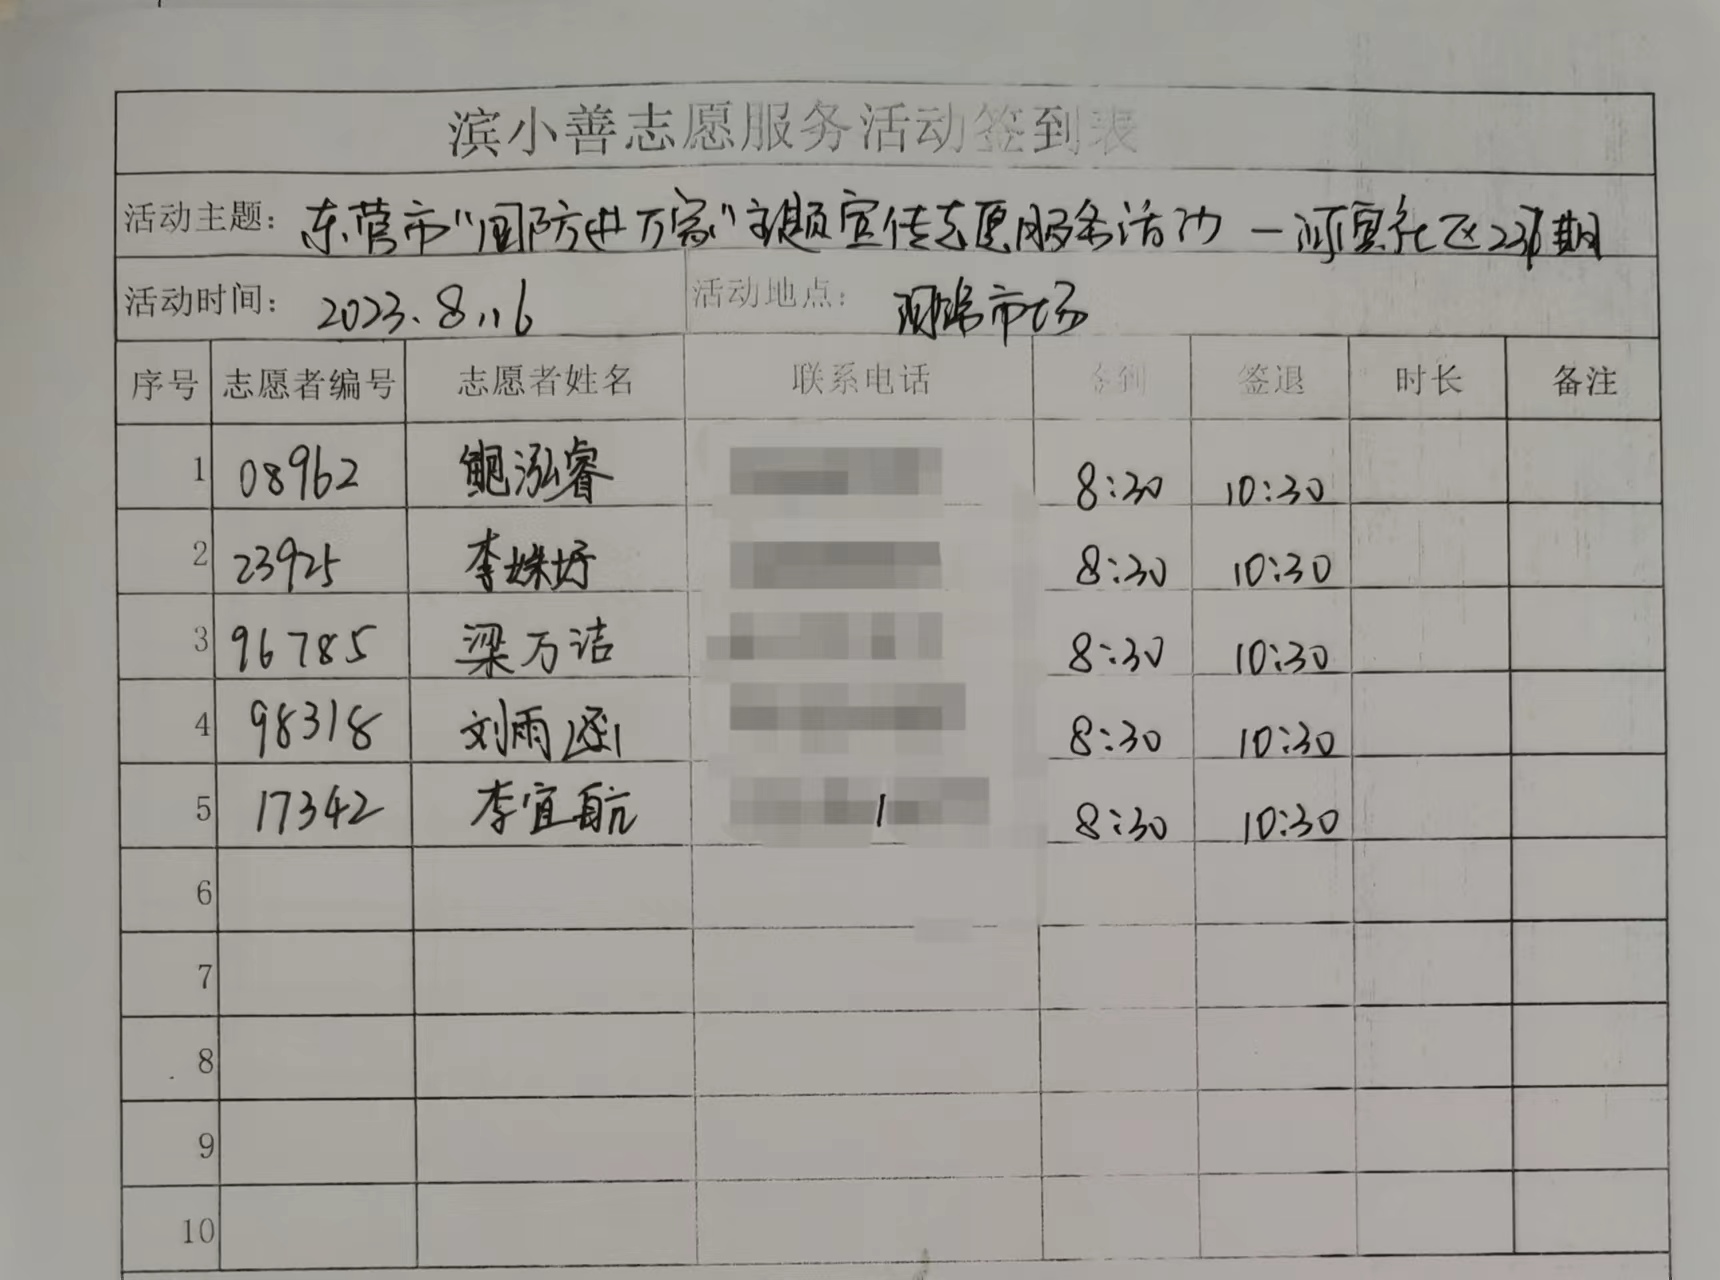 滨小善志愿服务活动签到表
活动主题: 东营市"国防进万家"主题宣传志愿服务活动 — 河宽社区 期
活动时间: 2023.8.16 活动地点: 市场
序号 志愿者编号 志愿者姓名 联系电话 签到 签退 时长 备注
1 08962 鲍泓睿 8:30 10:30
2 23925 李姝妤 8:30 10:30
3 96785 梁万洁 8:30 10:30
4 98318 刘雨涵 8:30 10:30
5 17342 李宜航 8:30 10:30
6
7
8
9
10